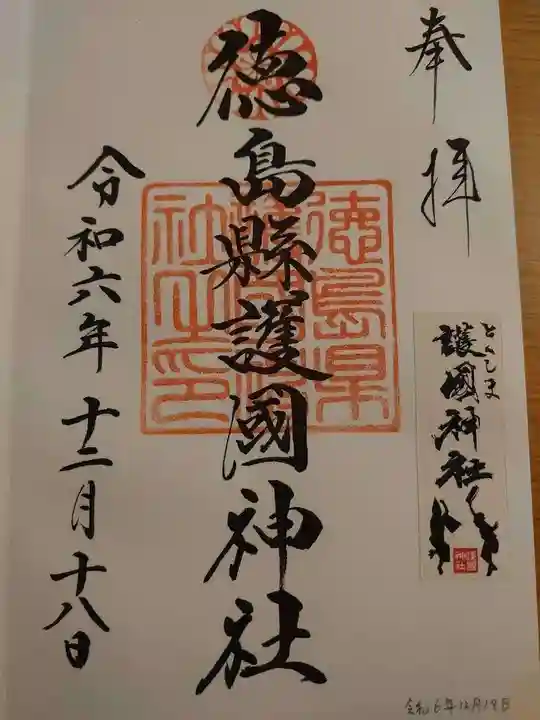 奉拝
とくしま
護國神社
護國神社
徳島縣護國神社
徳島県護国神社之印
令和六年十二月十八日
令和6年12月18日